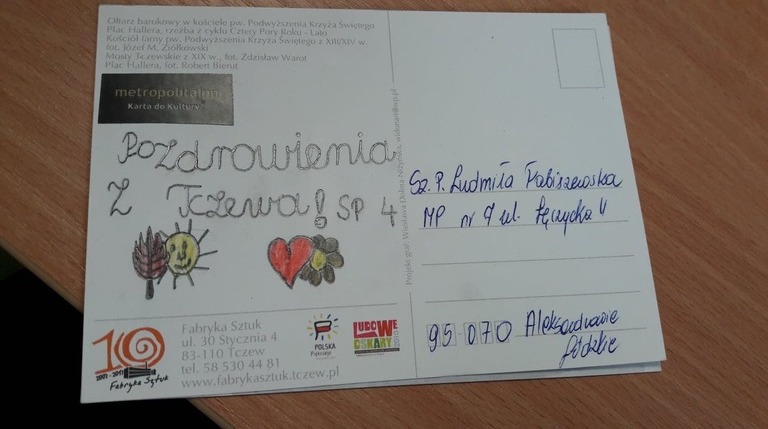 Ołtarz barokowy w kościele pw. Podwyższenia Krzyża Świętego
Plac Hallera, rzeźba z cyklu Cztery Pory Roku - Lato
Kościół farny pw. Podwyższenia Krzyża Świętego z XIII/XIV w.
fot. Józef M. Ziółkowski
Mosty Tczewskie z XIX w., fot. Zdzisław Warot
Plac Hallera, fot. Robert Bierut
metropolitalna
Karta do Kultury
Pozdrowienia
Z Tczewa! SP 4
10
2007-2017
Fabryka Sztuk
Fabryka Sztuk
ul. 30 Stycznia 4
83-110 Tczew
tel. 58 530 44 81
www.fabrykasztuk.tczew.pl
POLSKA
LUDOWE
OSKARY
Projekt graf.
Sz. P. Ludmiła Fabiszewska
MP nr 7 ul. Łęczycka
95-070 Aleksandrowie